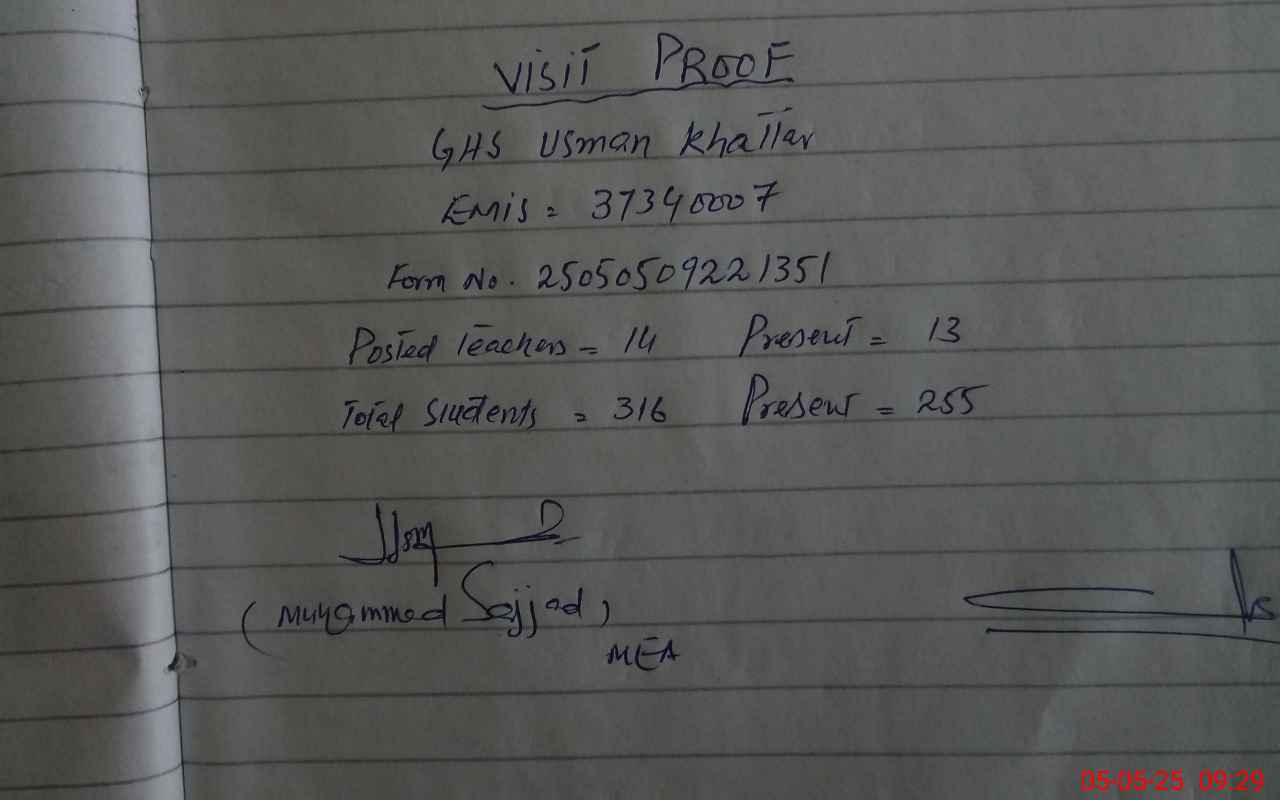 VISIT PROOF
GHS Usman Khattar
EMIS = 37340007
Form No. 25050509221351
Posted Teachers = 14 Present = 13
Total Students = 316 Present = 255
(Muhammad Sajjad)
MEA
05-05-25 09:29